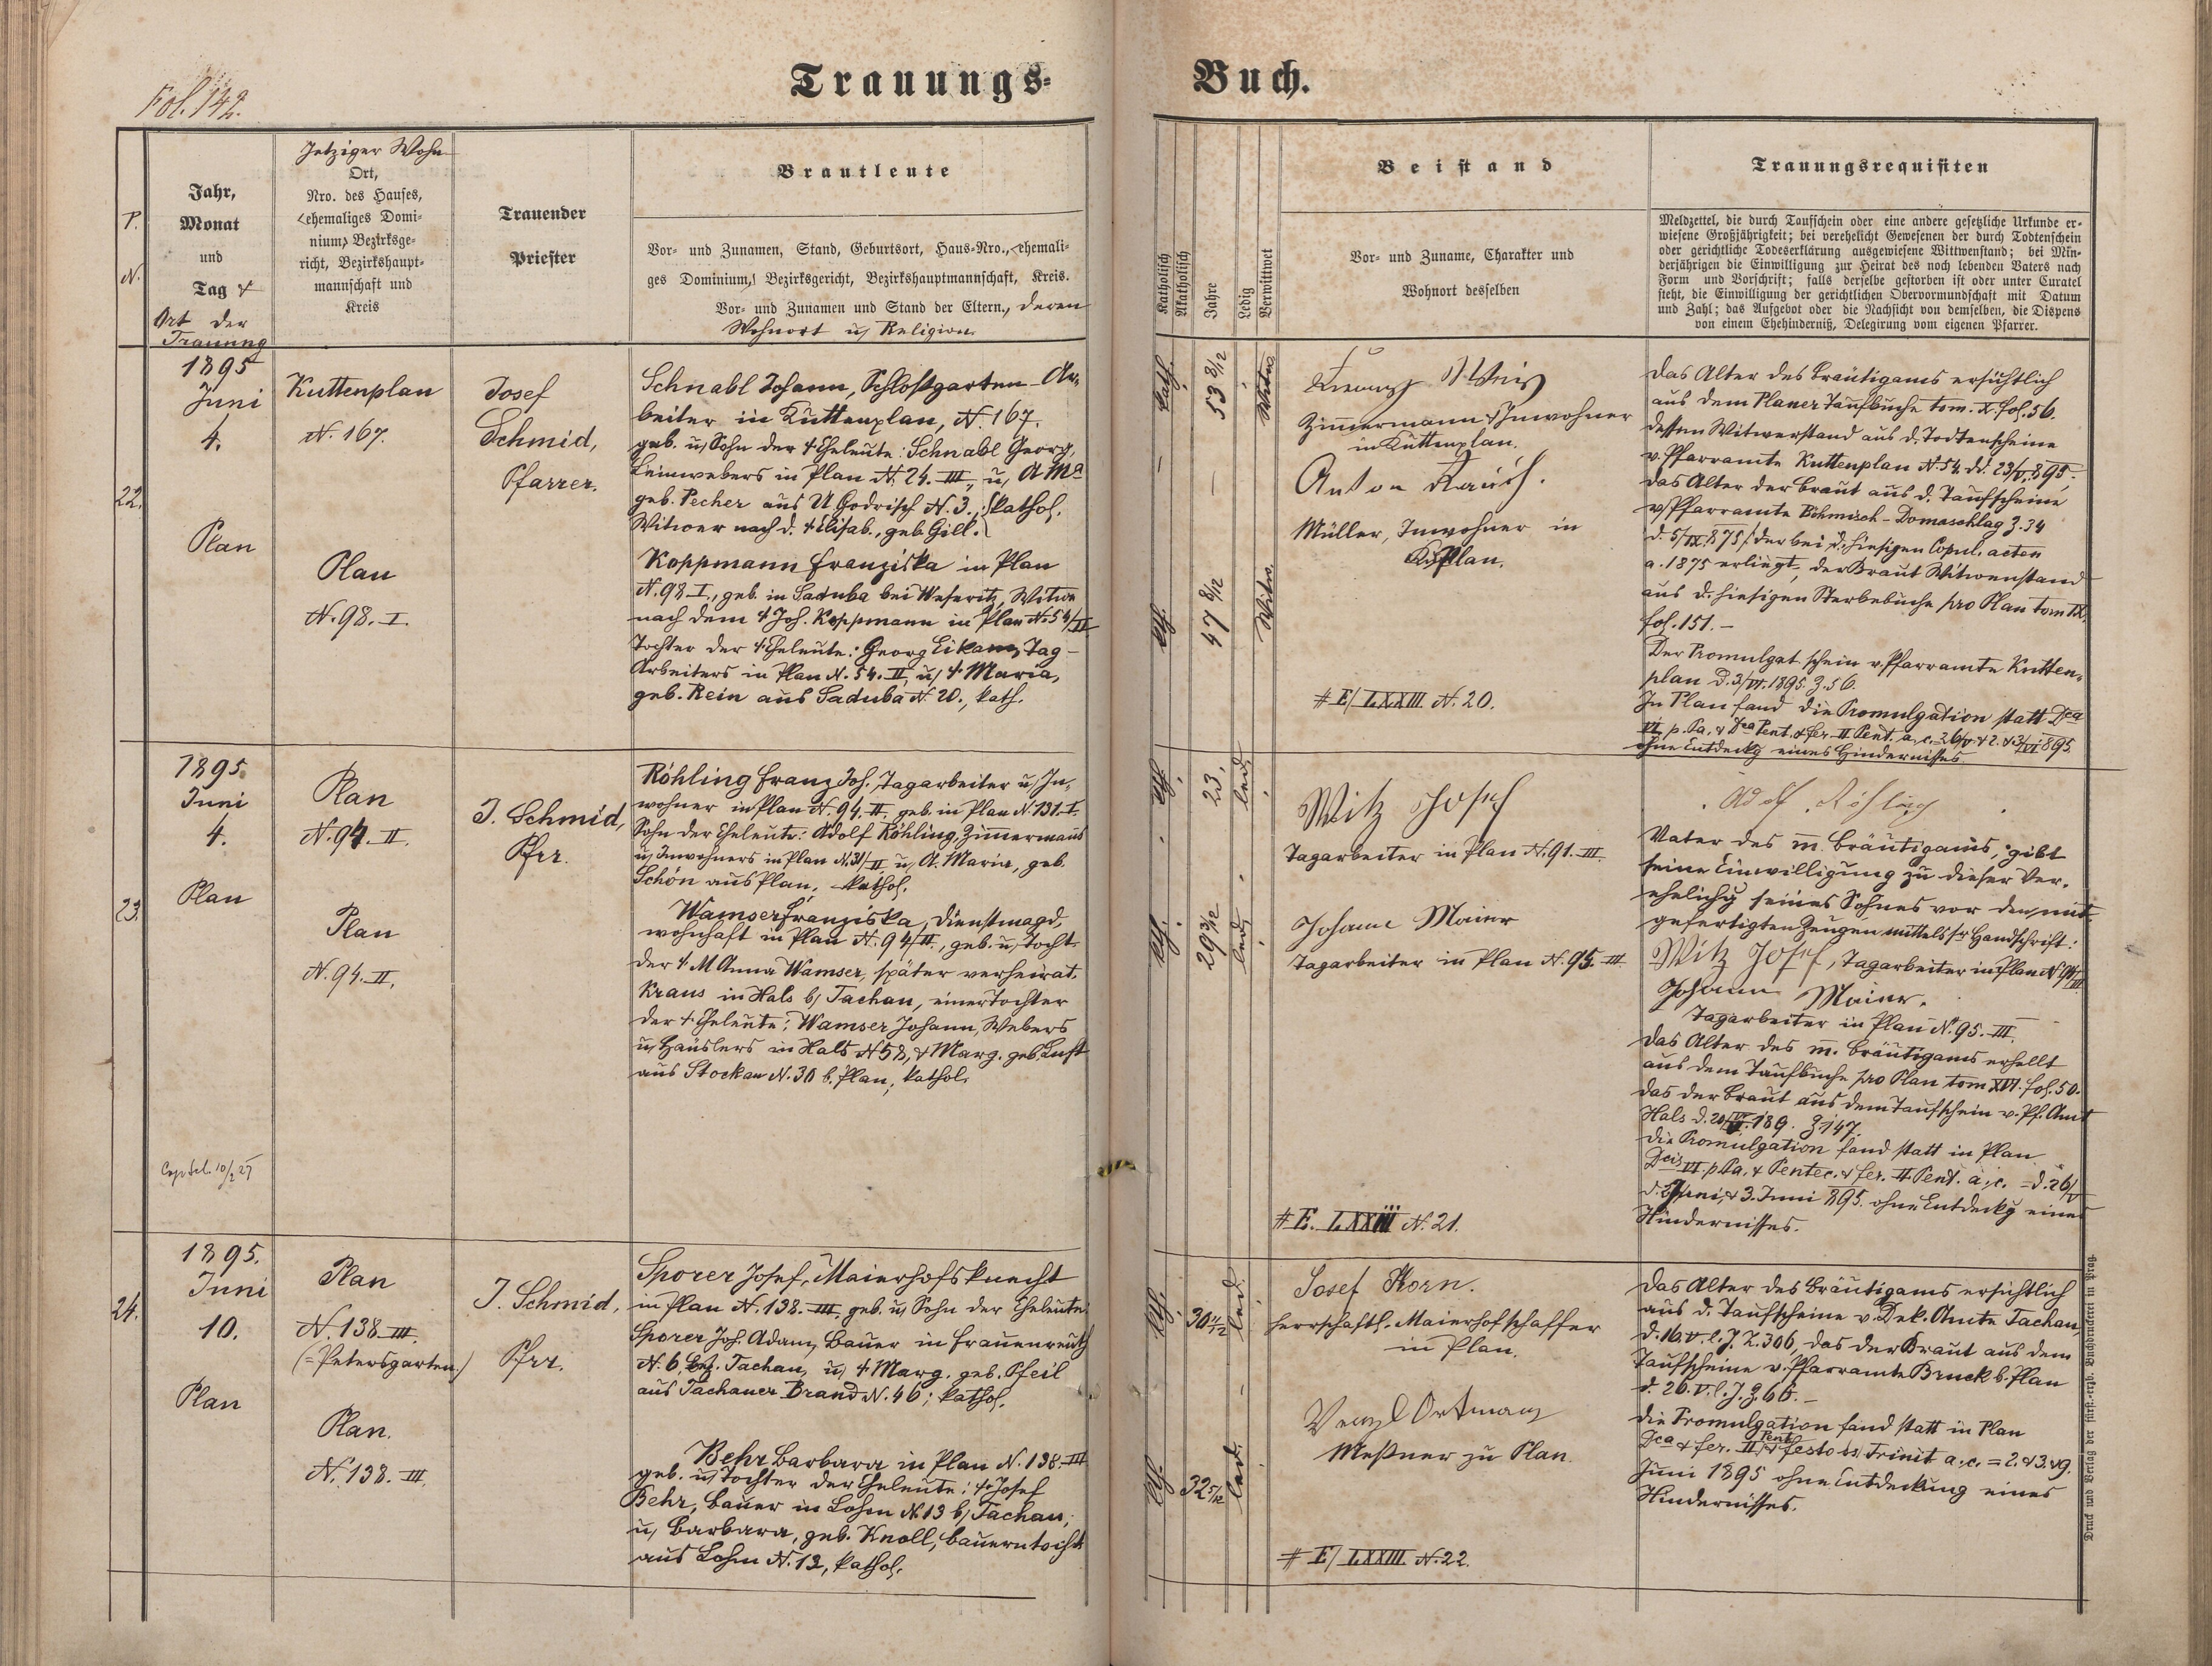 Fol. 142.
Trauungs-
Buch.
P.
N.
Jahr,
Monat
und
Tag &
Ort der
Trauung
Jetziger Wohn
Ort,
Nro. des Hauses,
<ehemaliges Domi-
nium> Bezirksge-
richt, Bezirkshaupt-
mannschaft und
Kreis
Trauender
Priester
Brautleute
Vor- und Zunamen, Stand, Geburtsort, Haus-Nro., <ehemali-
ges Dominium,> Bezirksgericht, Bezirkshauptmannschaft, Kreis.
Vor- und Zunamen und Stand der Eltern., deren
Wohnort u, Religion.
Katholisch
Akatholisch
Jahre
Ledig
Verwittwet
Beistand
Vor- und Zuname, Charakter und
Wohnort desselben
Trauungsrequisiten
Meldzettel, die durch Taufschein oder eine andere gesetzliche Urkunde er-
wiesene Großjährigkeit; bei verehelicht Gewesenen der durch Todtenschein
oder gerichtliche Todeserklärung ausgewiesene Wittwenstand; bei Min-
derjährigen die Einwilligung zur Heirat des noch lebenden Vaters nach
Form und Vorschrift; falls derselbe gestorben ist oder unter Curatel
steht, die Einwilligung der gerichtlichen Obervormundschaft mit Datum
und Zahl; das Aufgebot oder die Nachsicht von demselben, die Dispens
von einem Ehehinderniß, Delegirung vom eigenen Pfarrer.
22.
1895
Juni
4.
Plan
Kuttenplan
N. 167.
Plan
N. 98. I.
Josef
Schmid,
Pfarrer.
Schnabl Johann, Schloßgarten-Ar-
beiter in Kuttenplan, N. 167.
geb. u, Sohn der † Eheleute: Schnabl Georg,
Leinwebers in Plan N. 24. III, u, A Ma
geb. Pecher aus U Godrisch N. 3., kathol.
Witwer nach d. † Elisab., geb. Gill.
Koppmann Franziska in Plan
N. 98 I., geb. in Saduba bei Weseritz, Witwe
nach dem † Joh. Koppmann in Plan N. 54/II
Tochter der † Eheleute: Georg Eikam, Tag-
Arbeiters in Plan N. 54. II, u, † Maria,
geb. Rein aus Saduba N. 20., kath.
kath.
53 8/12
Witwr.
kth.
47 8/12
Witw.
Franz Weis
Zimmermann, Inwohner
in Kuttenplan.
Anton Rauch.
Müller, Inwohner in
K. Plan.
# E/ LXXIII. N. 20.
Das Alter des Bräutigams ersichtlich
aus dem Planer Taufbuche tom. X. fol. 56.
dessen Witwerstand aus d. Todtenscheine
v. Pfarramte Kuttenplan N. 54. dd. 23/V. 895,
das Alter der Braut aus d. Taufscheine
v. Pfarramte Böhmisch-Domaschlag Z. 34
d. 5/IX. 875, der bei d. hiesigen Copul. acten
a. 1875 erliegt, der Braut Witwenstand
aus d. hiesigen Sterbebuche pro Plan tom IX.
fol. 151. —
Der Promulgat schein v. Pfarramte Kutten-
plan d. 3/VI. 1895. Z. 56.
In Plan fand die Promulgation statt Dca
VI. p. Pa, & Dca Pent. & fer. II Pent. a. c. = 26/V. & 2. & 3/VI 895.
ohne Entdeckg eines Hindernisses
23.
1895.
Juni
4.
Plan
Plan
N. 94. II.
Plan
N. 94. II.
J. Schmid,
Pfrr.
Röhling Franz Joh., Tagarbeiter u, In-
wohner in Plan N. 94. II, geb. in Plan N. 131. I.
Sohn der Eheleute: Adolf Röhling, Zimmermans
u, Inwohners in Plan N. 31/II u, A. Maria, geb.
Schön aus Plan. kathol.
Wamser Franziska, Dienstmagd,
wohnhaft in Plan N. 94/II., geb. u, Tocht.
der † M Anna Wamser, später verheirat.
Kraus in Hals b/ Tachau, einer Tochter
der † Eheleute: Wamser Johann, Webers
u, Häuslers in Hals N 58, & Marg. geb. Luft
aus Stockau N. 30 b. Plan, kathol.
kth.
23.
led.
kth.
29 3/12
led.
Witz Josef
Tagarbeiter in Plan N. 91. III.
Johann Maier
Tagarbeiter in Plan N. 95. III.
# E. LXXIII N. 21.
Adolf Röhling
Vater des m. Bräutigams, gibt
seine Einwilligung zu dieser Ver-
ehelichg seines Sohnes vor den mit-
gefertigten Zeugen mittels sr Handschrift:
Witz Josef, Tagarbeiter in Plan N. 91/III
Johann Maier.
Tagarbeiter in Plan N. 95. III.
Das Alter des m. Bräutigams erhellt
aus dem Taufbuche pro Plan tom XVI. fol. 50.
das der Braut aus dem Taufschein v. Pf. Amt
Hals d. 20/VI. 189. Z 147.
Die Promulgation fand statt in Plan
Dcis VI. p Pa, & Pentec. & fer. II Pent. a. c. = d. 26/V
d. 2. Juni, & 3. Juni 895. ohne Entdeckg eines
Hindernisses.
24.
1895.
Juni
10.
Plan
Plan
N. 138. III.
(= Petersgarten.)
Plan.
N. 138. III.
J. Schmid,
Pfrr.
Sporer Josef, Maierhofsknecht
in Plan N. 138. III, geb. u, Sohn der Eheleute
Sporer Joh. Adam, Bauer in Frauenreuth
N. 6. Bez. Tachau, u, † Marg. geb. Pfeil
aus Tachauer Brand N. 46; kathol.
Behr Barbara in Plan N. 138. III
geb. u, Tochter der Eheleute: † Josef
Behr, Bauer in Lohm N 13 b/ Tachau,
u, Barbara, geb. Knoll, Bauerntocht
aus Lohm N. 12, kathol.
kth.
30 11/12
led.
kth.
32 5/12
led.
Josef Horn.
herrschaftl. Maierhofschaffer
in Plan.
Wenzl Ortmann
Meßner zu Plan.
# E/ LXXIII. N. 22.
Das Alter des Bräutigams ersichtlich
aus d. Taufscheine v. Dek. Amte Tachau,
d. 16. V. l. J. Z. 306, das der Braut aus dem
Taufscheine v. Pfarramte Bruck b. Plan
d. 26. V. l. J. Z. 66. —
Die Promulgation fand statt in Plan
Dca & fer. II Pent. & festo ss Trinit a. c. = 2. & 3. & 9.
Juni 1895 ohne Entdeckung eines
Hindernisses.
Druck und Verlag der fürst.-erzb. Buchdruckerei in Prag.